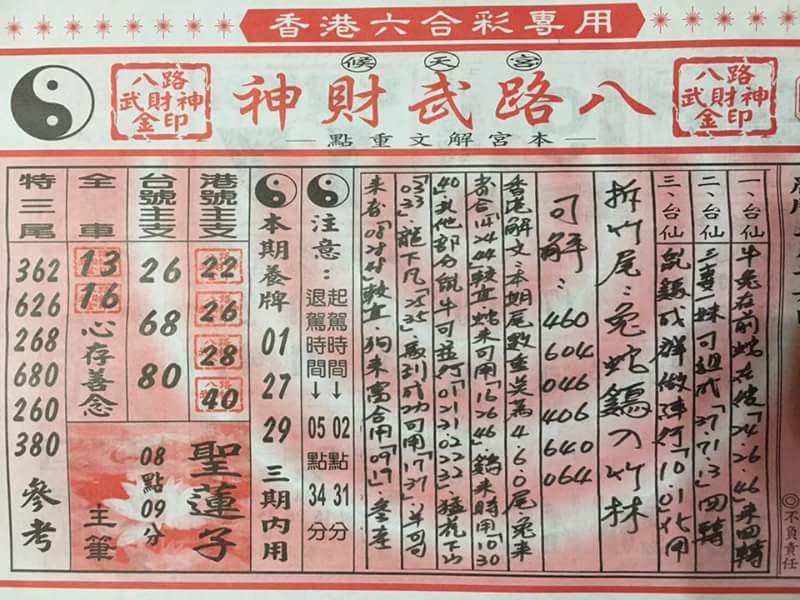 香港六合彩專用
候天宮
八路武財神
八路
武財神
金印
八路
武財神
金印
本宮解文重點
一、台仙
牛兔在前蛇在後「24.26.46」來四轉
二、台仙
三妻一妹可組成「37.71.3」四轉
三、台仙
鼠鷄成群做陣行「10.01」化用
拆竹尾:兔蛇鷄入竹林
可解:
460
604
046
406
640
064
香港解文:本期尾數重英為4.6.0尾兔來
寄合「14.24.44」較宜蛇來可用「16.26.46」鷄來時用「10.30
40」其他部分鼠牛可並行「01.21.02.22」猛虎下山
「03.33」龍下凡「25.35」馬到成功可用「17.37」羊可
注意:
起駕時間→02點31分
退駕時間→05點34分
本期養牌
01
27
29
三期內用
港號主支
22
26
28
40
台號主支
26
68
80
全車
13
16
心存善念
聖蓮子
08點09分
主筆
特三尾
362
626
268
680
260
380
參考
◎不負責任